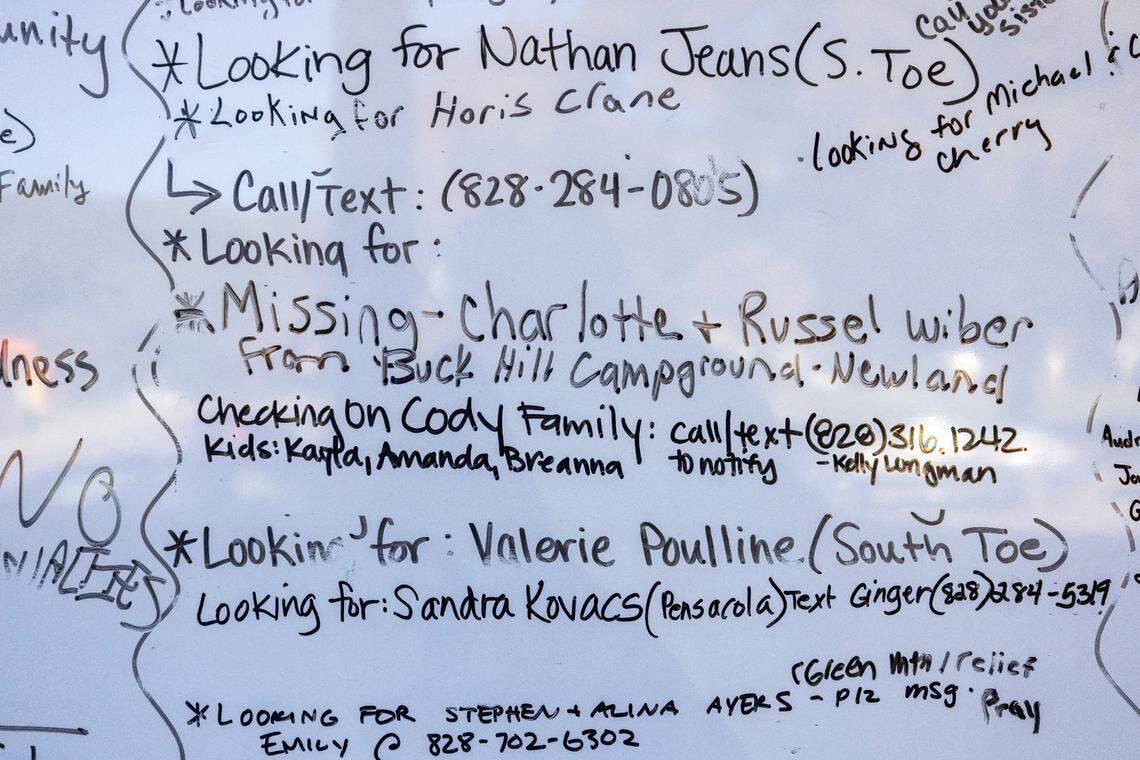 Looking for
unity
Call your sister
*Looking for Nathan Jeans (S. Toe)
e)
*Looking for Horis Crane
looking for Michael &
Cherry
Family
↳ Call/Text: (828-284-0805)
*Looking for:
*Missing - Charlotte + Russel Wiber
From Buck Hill Campground - Newland
lness
Checking on Cody Family: call/text (828) 316.1242.
Kids: Kayla, Amanda, Breanna to notify - Kelly Lungman
Aud
Jo
G
NO
*Lookin' for: Valerie Poulline (South Toe)
Looking for: Sandra Kovacs (Pensacola) Text Ginger (828) 284-5319
(Green Mtn / relief
*LOOKING FOR STEPHEN + ALINA AYERS - Plz msg. Pray
EMILY @ 828-702-6302